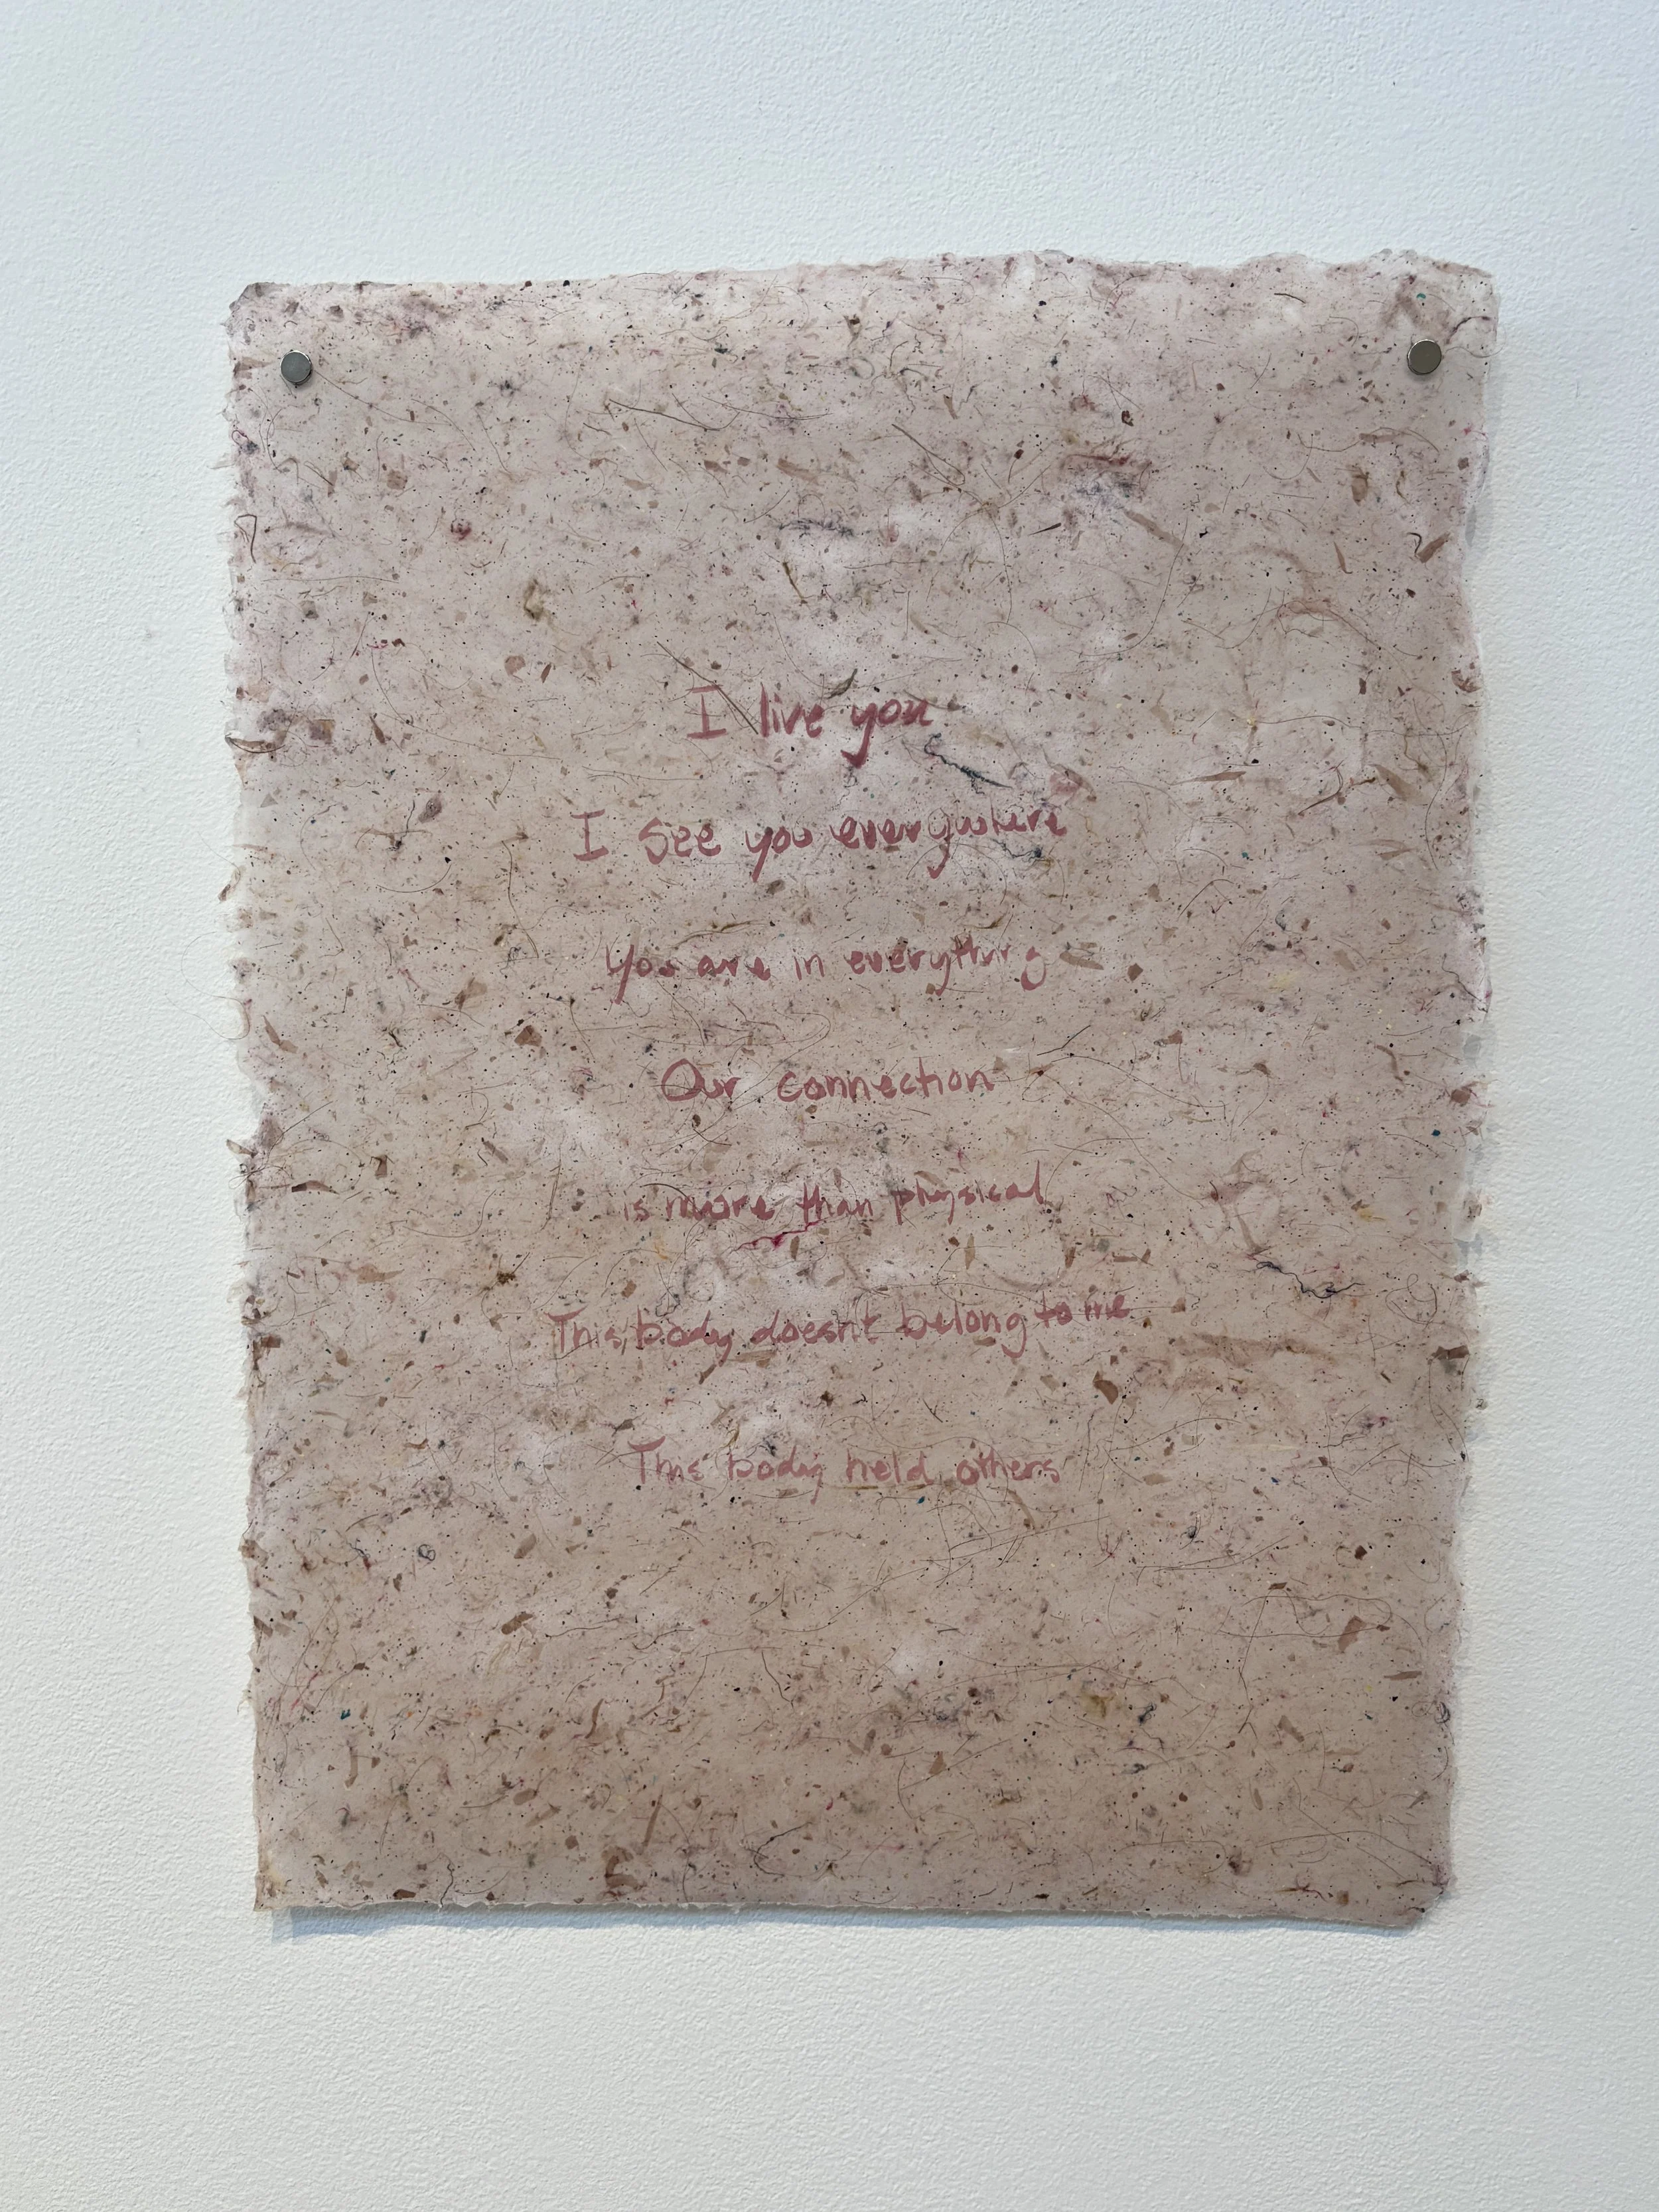 I live you
I see you everywhere
You are in everything
Our connection
is more than physical
This body doesn't belong to me
This body held others